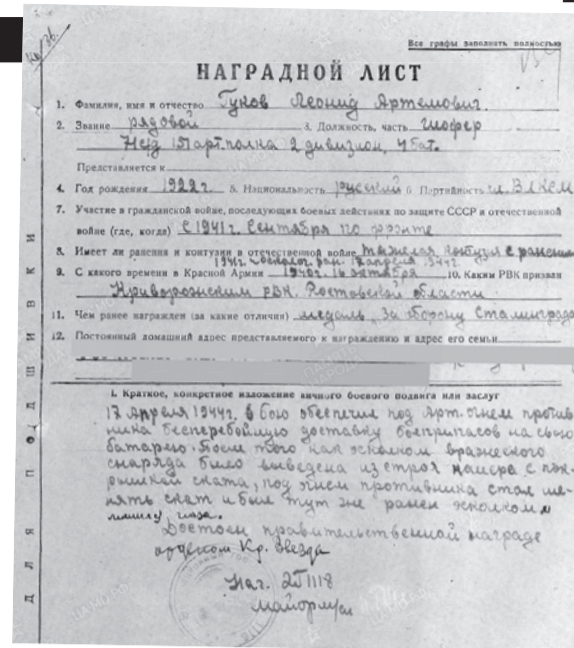 Все графы заполнять полностью
НАГРАДНОЙ ЛИСТ
1. Фамилия, имя и отчество Гуков Леонид Артемович
2. Звание рядовой 3. Должность, часть шофер
арт. полка 2 дивизион, 4 бат.
Представляется к
4. Год рождения 1922 г. 5. Национальность русский 6. Партийность чл. ВЛКСМ
7. Участие в гражданской войне, последующих боевых действиях по защите СССР и отечественной
войне (где, когда) с 1941 г. Сентября по фронте
8. Имеет ли ранения и контузии в отечественной войне тяжелая контузия с ранением
1941г. осколоч. ран. 17 апреля 1944г.
9. С какого времени в Красной Армии 1940г. 16 октября 10. Каким РВК призван
Криворожским РВК. Ростовской области
11. Чем ранее награжден (за какие отличия) медаль за оборону Сталинграда
12. Постоянный домашний адрес представляемого к награждению и адрес его семьи
I. Краткое, конкретное изложение личного боевого подвига или заслуг
17 Апреля 1944г. в бою обеспечил под Арт. огнем против-
ника бесперебойную доставку боеприпасов на свою
батарею. После того как осколком вражеского
снаряда было выведена из строя камера с пок-
рышкой ската, под огнем противника стал ме-
нять скат и был тут же ранен осколком
глаза.
Достоен правительственной награде
орденом Кр. Звезда
Нач.
майор
ДЛЯ ПОДШИВКИ